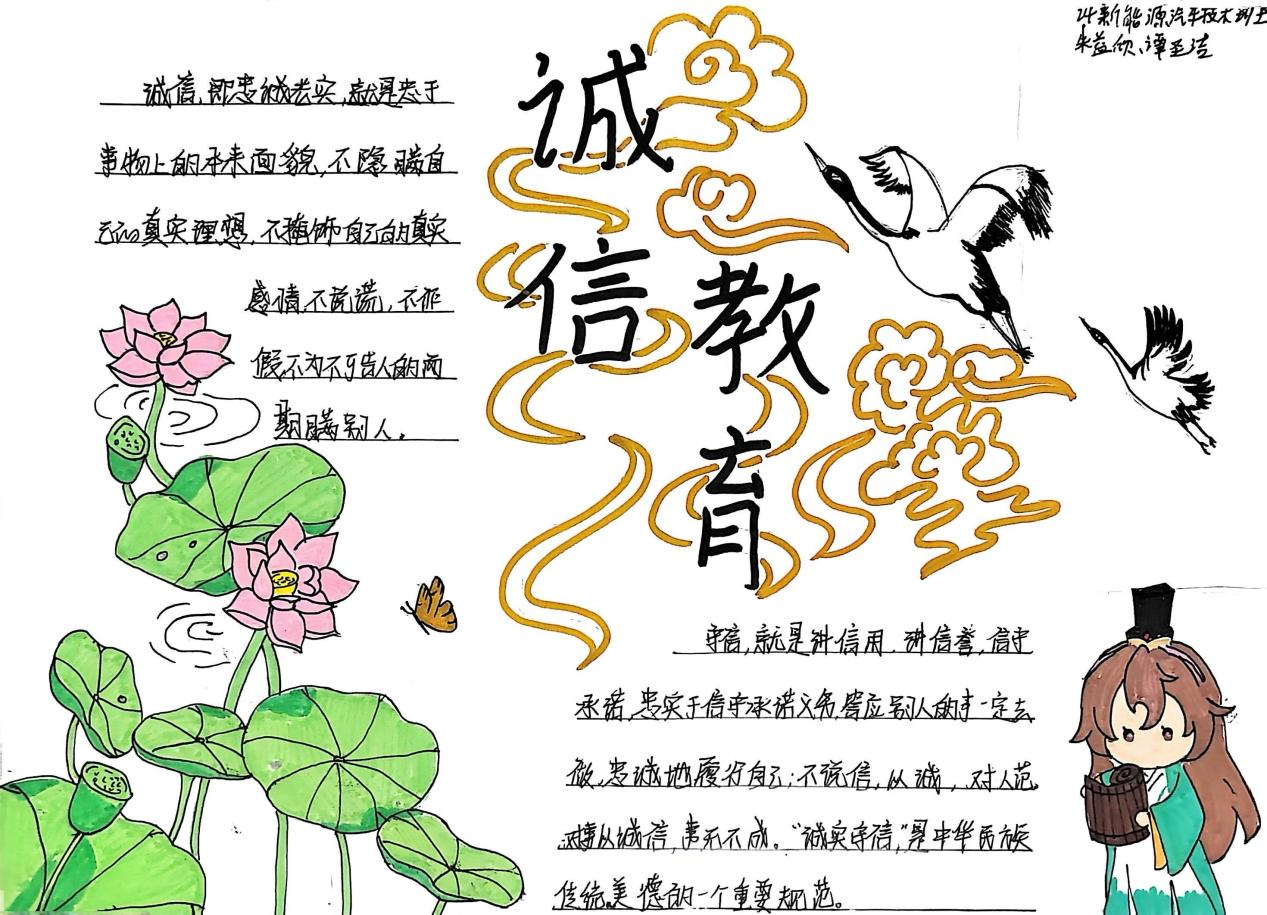 24新能源汽车技术班
朱益欣、谭圣洁
诚信教育
诚信,即忠诚老实,就是忠于
事物上的本来面貌,不隐瞒自
己的真实理想,不掩饰自己的真实
感情,不说谎,不作
假,不为不可告人的而
欺瞒别人。
守信,就是讲信用,讲信誉,信守
承诺,忠实于信守承诺义务,答应别人的事一定去
做,忠诚地履行自己;不说信,从诚,对人范,
对事从诚信,事无不成。“诚实守信,”是中华民族
传统美德的一个重要规范。